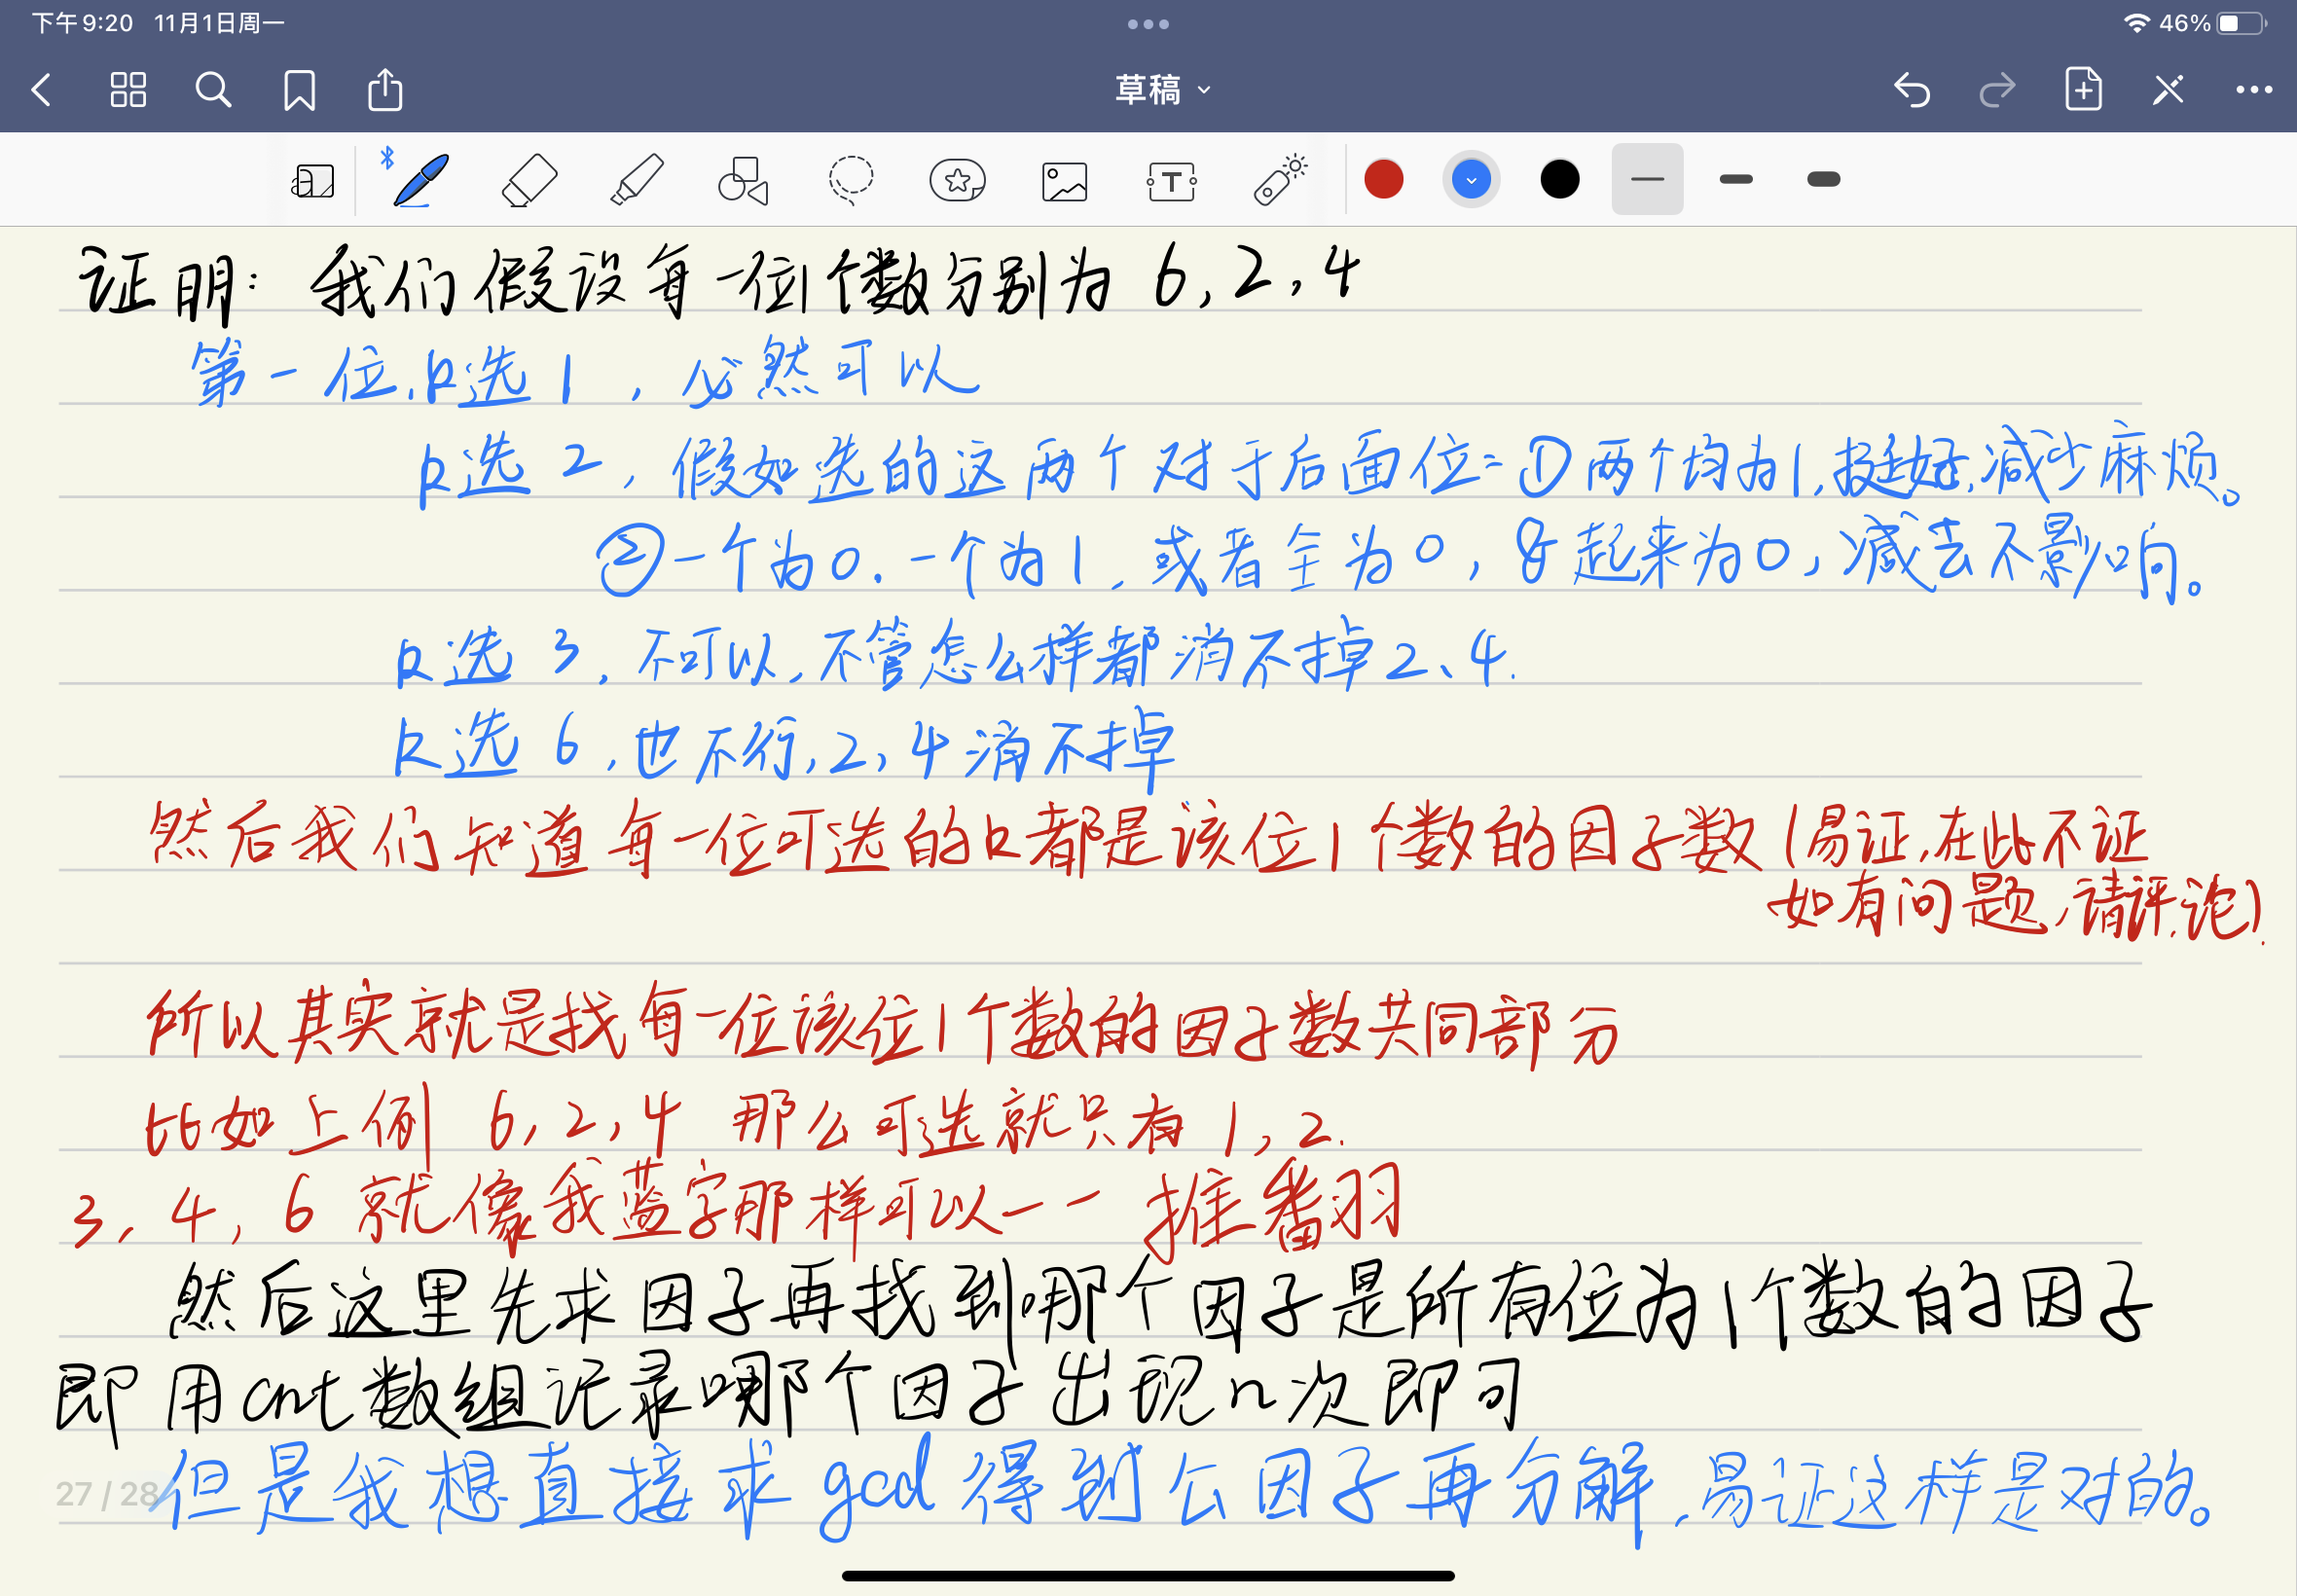 下午9:20 11月1日周一
46%
草稿
证明: 我们假设每一位1个数分别为 6, 2, 4
第一位, k选 1, 必然可以
k选 2, 假如选的这两个对于后面位: ①两个均为1, 挺好, 减少麻烦。
②一个为0. 一个为1, 或者全为0, &起来为0, 减去不影响。
k选 3, 不可以, 不管怎么样都消不掉2、4.
k选 6, 也不行, 2, 4消不掉
然后我们知道每一位可选的k都是该位1个数的因子数 (易证, 在此不证
如有问题, 请评论).
所以其实就是找每一位该位1个数的因子数共同部分
比如上例 6, 2, 4 那么可选就只有 1, 2.
3, 4, 6 就像我蓝字那样可以一一推翻
然后这里先求因子再找到哪个因子是所有位为1个数的因子
即用cnt数组记录哪个因子出现n次即可
但是我想直接求gcd得到公因子再分解, 易证这样是对的。
27 / 28